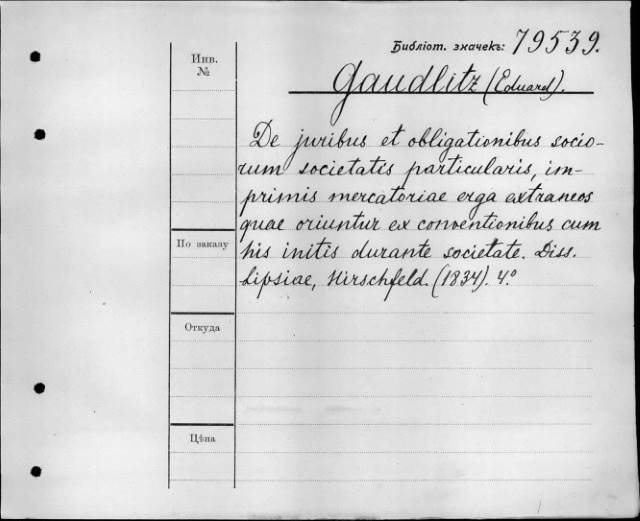 Библіот. значекъ: 79539.
Инв.
№
Gaudlitz (Eduard).
De juribus et obligationibus socio-
rum societatis particularis, im-
primis mercatoriae erga extraneos
quae oriuntur ex conventionibus cum
his initis durante societate. Diss.
Lipsiae, Hirschfeld. (1834). 4.º
По заказу
Откуда
Цѣна